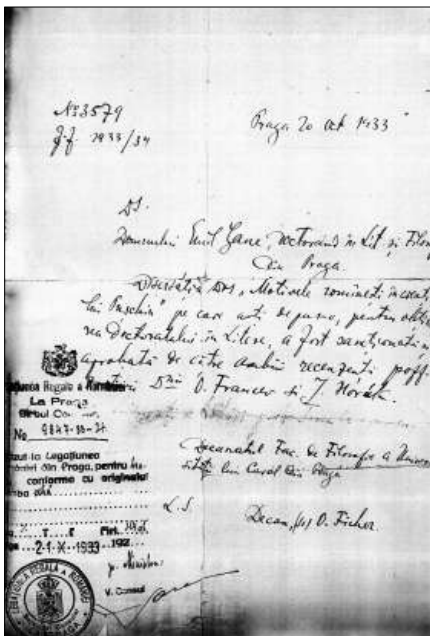 No 3579
J.f. 1933/34
Praga 20 oct 1933
DS.
Domnului Emil Gane, doctorand in Lit și Filoso
Din Praga.
Disertația Dvs „Motivele românești in
lui Pușchin" pe care ați depuso, pentru
rea Doctoratului in Litere, a fost
aprobată de către ambii recenzenți
Dnii O. Francev și J. Horák.
Decanatul Fac. de Filosofie a Univer
lui Carol din Praga
L.S.
Decan, O. Ficher.
Regală a României
La Praga
No 9847-33-34
Legațiunea
din Praga, pentru
conforme cu originalul
21.X.1933 192
p. Ministru
V. Consul